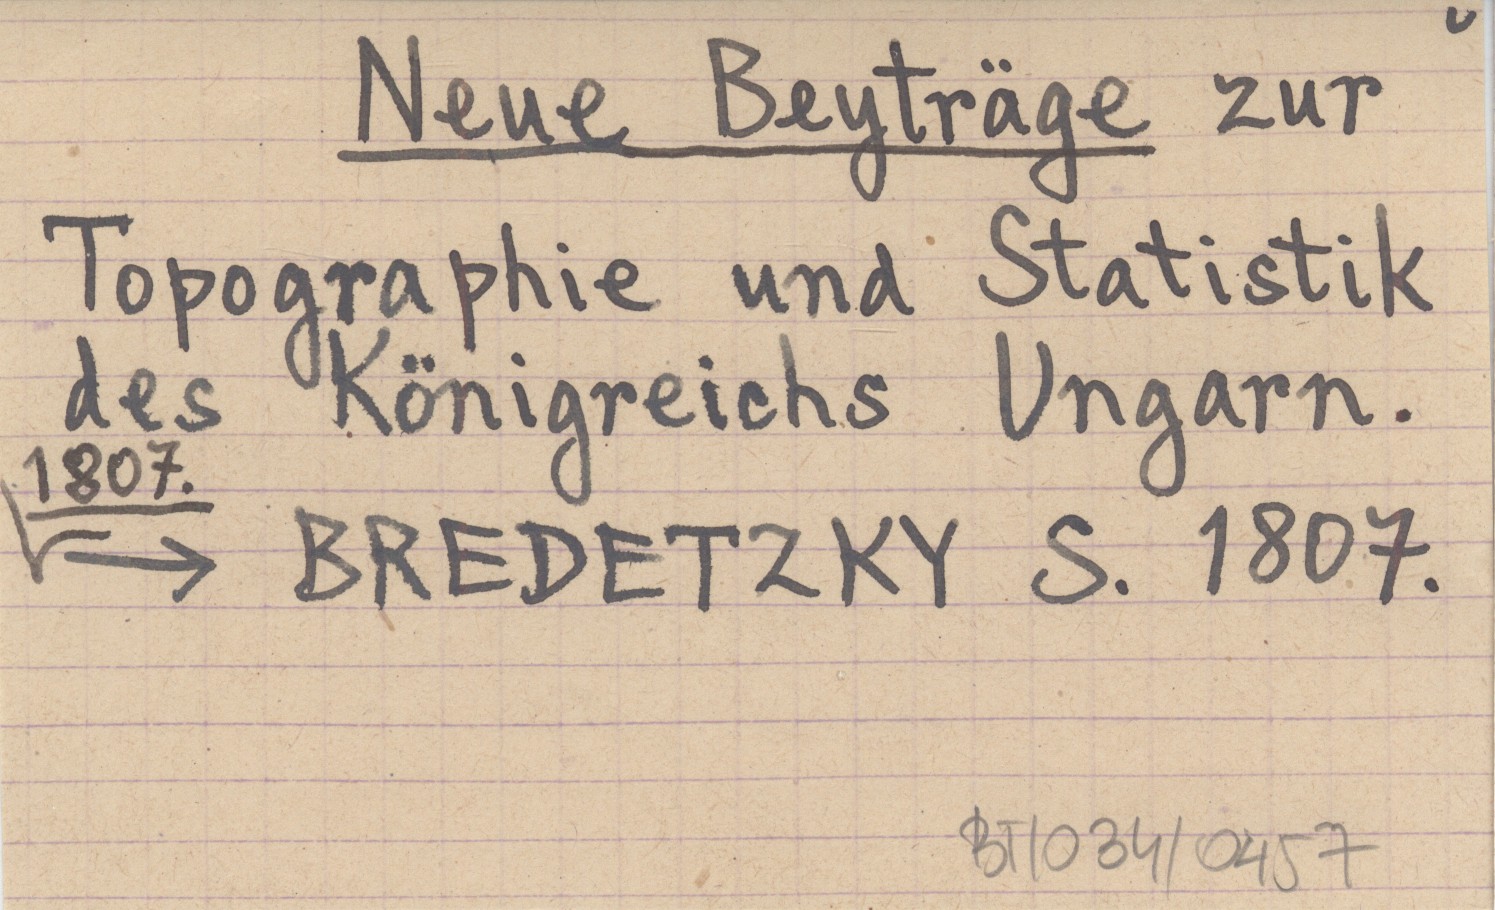 Neue Beyträge zur
Topographie und Statistik
des Königreichs Ungarn.
1807.
→ BREDETZKY S. 1807.
BT/034/0457